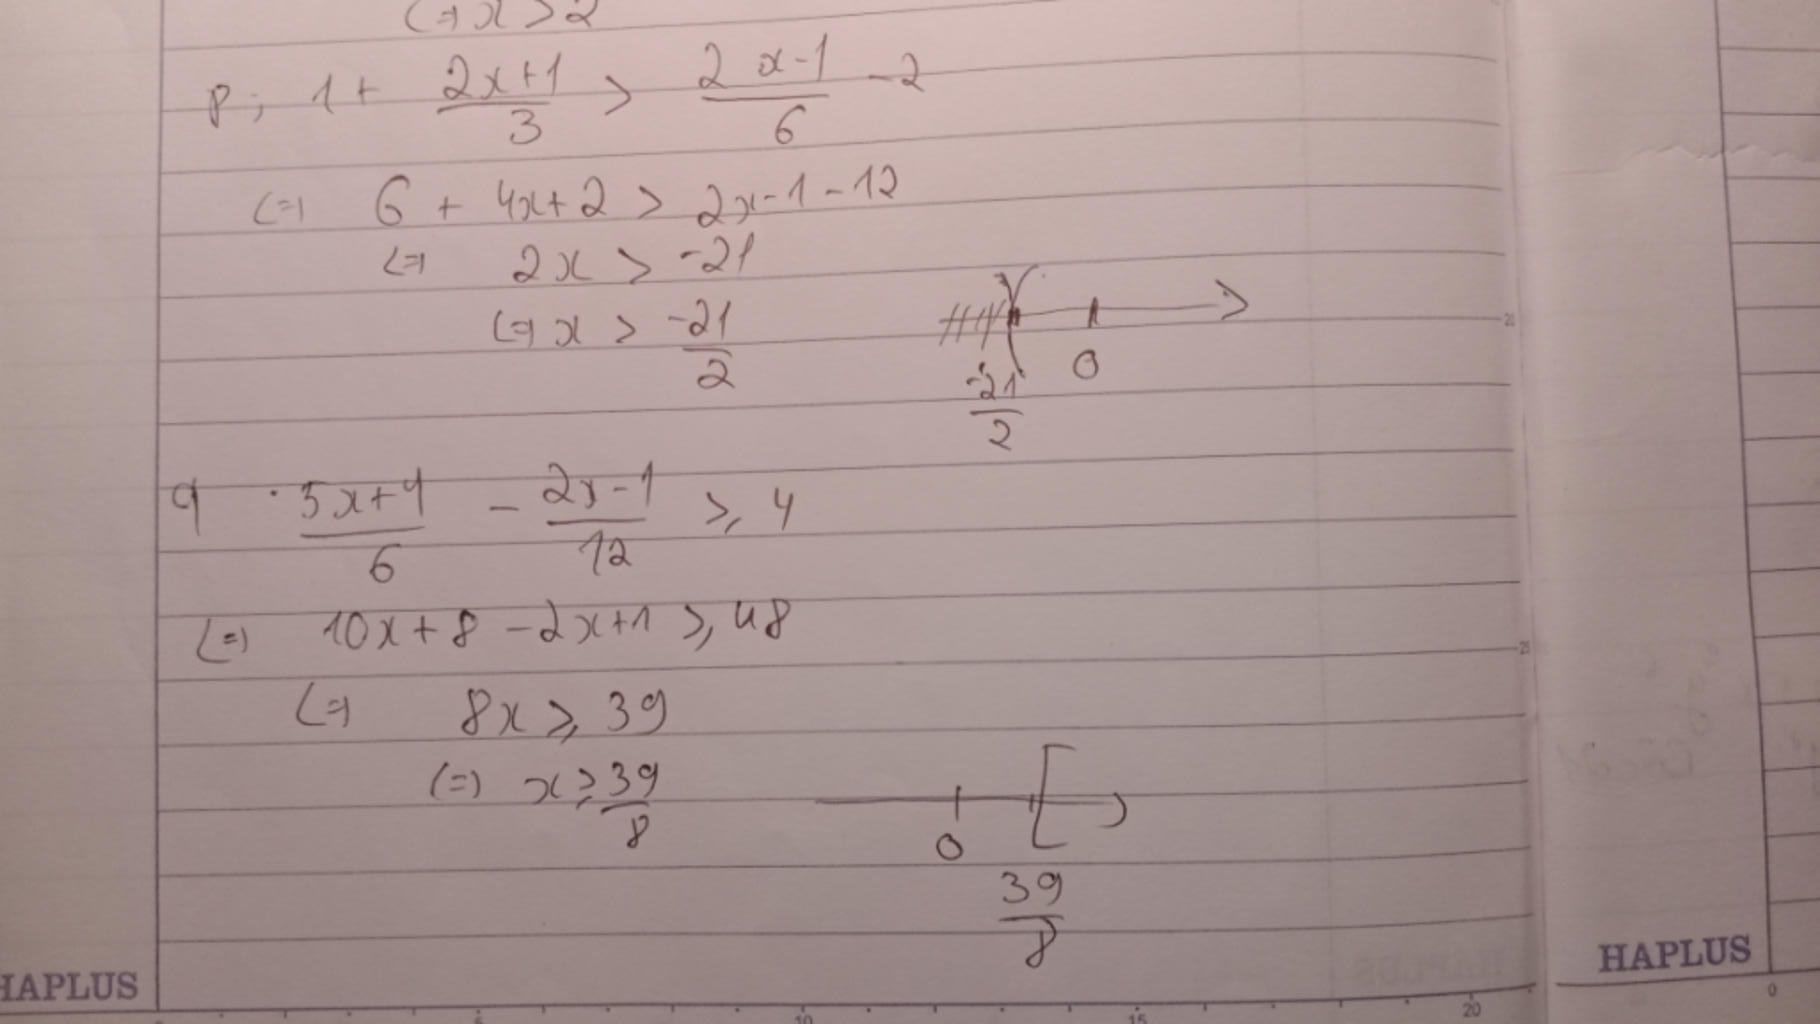 (=) x > 2
p; 1 + \frac{2x+1}{3} > \frac{2x-1}{6} - 2
(=) 6 + 4x + 2 > 2x - 1 - 12
(=) 2x > -21
(=) x > \frac{-21}{2}
\frac{-21}{2} 0
q \frac{5x+4}{6} - \frac{2x-1}{12} ≥ 4
(=) 10x + 8 - 2x + 1 ≥ 48
(=) 8x ≥ 39
(=) x ≥ \frac{39}{8}
0 \frac{39}{8}
HAPLUS
HAPLUS
5 10 15 20
20
25
0